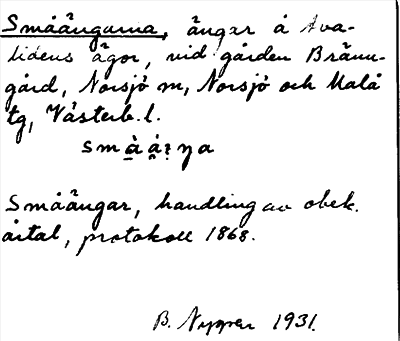 Småängarna, ängar å Ava-
lidens ägor, vid gården Bränn-
gård, Norsjö sn, Norsjö och Malå
tg, Västerb. l.
Småängar, handling av obek.
årtal, protokoll 1868.
B. 1931.